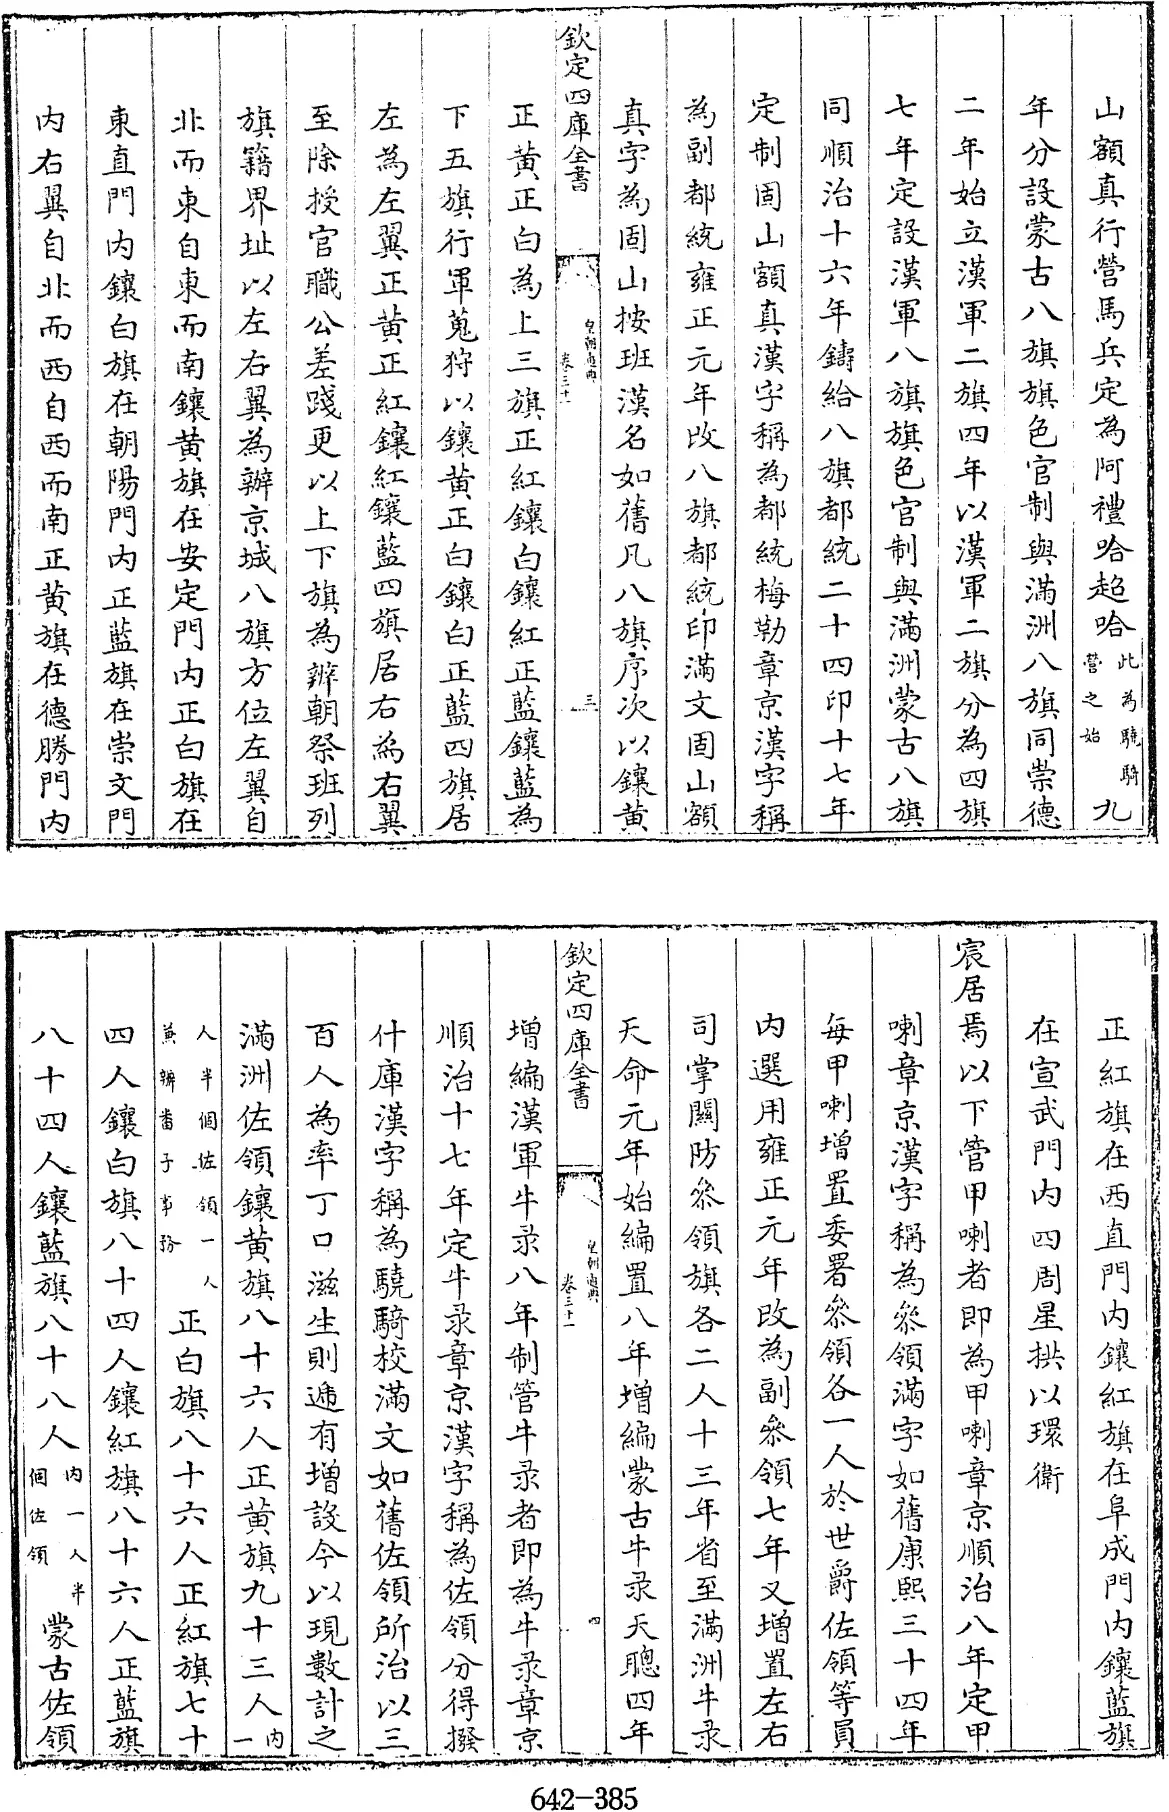 山額真行營馬兵定為阿禮哈超哈此為驍騎營之始九
年分設蒙古八旗旗色官制與滿洲八旗同崇德
二年始立漢軍二旗四年以漢軍二旗分為四旗
七年定設漢軍八旗旗色官制與滿洲蒙古八旗
同順治十六年鑄給八旗都統二十四印十七年
定制固山額真漢字稱為都統梅勒章京漢字稱
為副都統雍正元年改八旗都統印滿文固山額
真字為固山按班漢名如舊凡八旗序次以鑲黃
欽定四庫全書 皇朝通典 卷三十一 三
正黃正白為上三旗正紅鑲白鑲紅正藍鑲藍為
下五旗行軍蒐狩以鑲黃正白鑲白正藍四旗居
左為左翼正黃正紅鑲紅鑲藍四旗居右為右翼
至除授官職公差踐更以上下旗為辨朝祭班列
旗籍界址以左右翼為辨京城八旗方位左翼自
北而東自東而南鑲黃旗在安定門內正白旗在
東直門內鑲白旗在朝陽門內正藍旗在崇文門
內右翼自北而西自西而南正黃旗在德勝門內
正紅旗在西直門內鑲紅旗在阜成門內鑲藍旗
在宣武門內四周星拱以環衛
宸居焉以下管甲喇者即為甲喇章京順治八年定甲
喇章京漢字稱為叅領滿字如舊康熙三十四年
每甲喇增置委署叅領各一人於世爵佐領等員
內選用雍正元年改為副叅領七年又增置左右
司掌關防叅領旗各二人十三年省至滿洲牛录
天命元年始編置八年增編蒙古牛录天聰四年
欽定四庫全書 皇朝通典 卷三十一 四
增編漢軍牛录八年制管牛录者即為牛录章京
順治十七年定牛录章京漢字稱為佐領分得撥
什庫漢字稱為驍騎校滿文如舊佐領所治以三
百人為率丁口滋生則遞有增設今以現數計之
滿洲佐領鑲黃旗八十六人正黃旗九十三人內一
人半個佐領一人兼辦畨子事務正白旗八十六人正紅旗七十
四人鑲白旗八十四人鑲紅旗八十六人正藍旗
八十四人鑲藍旗八十八人內一人半個佐領蒙古佐領
642-385